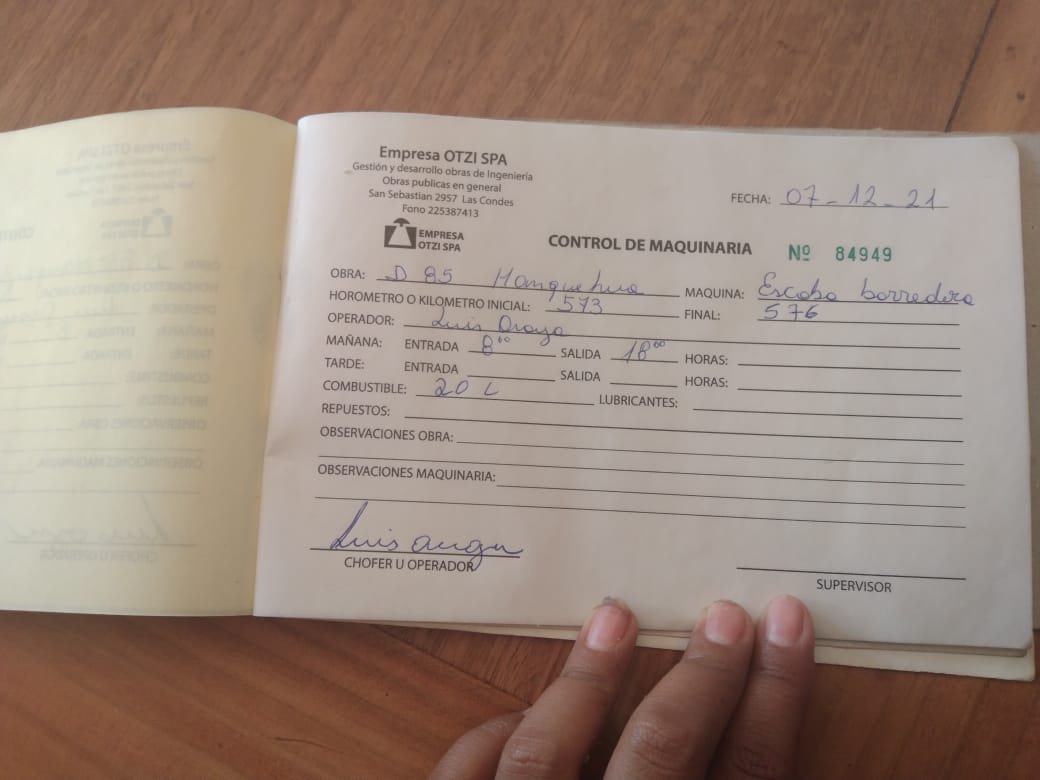 Empresa OTZI SPA
Gestión y desarrollo obras de Ingeniería
Obras publicas en general
San Sebastian 2957 Las Condes
Fono 225387413
EMPRESA
OTZI SPA
FECHA: 07-12-21
CONTROL DE MAQUINARIA Nº 84949
OBRA: D 85 Manquehue MAQUINA: Escoba barredera
HOROMETRO O KILOMETRO INICIAL: 573 FINAL: 576
OPERADOR: Luis Araya
MAÑANA: ENTRADA 8°° SALIDA 18°° HORAS:
TARDE: ENTRADA SALIDA HORAS:
COMBUSTIBLE: 20 L LUBRICANTES:
REPUESTOS:
OBSERVACIONES OBRA:
OBSERVACIONES MAQUINARIA:
Luis
CHOFER U OPERADOR
SUPERVISOR